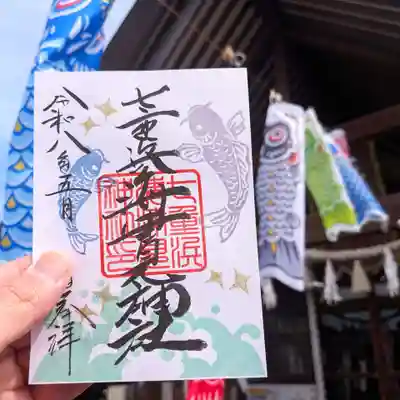 七重浜海津見神社
令和八年五月
拝
七重浜